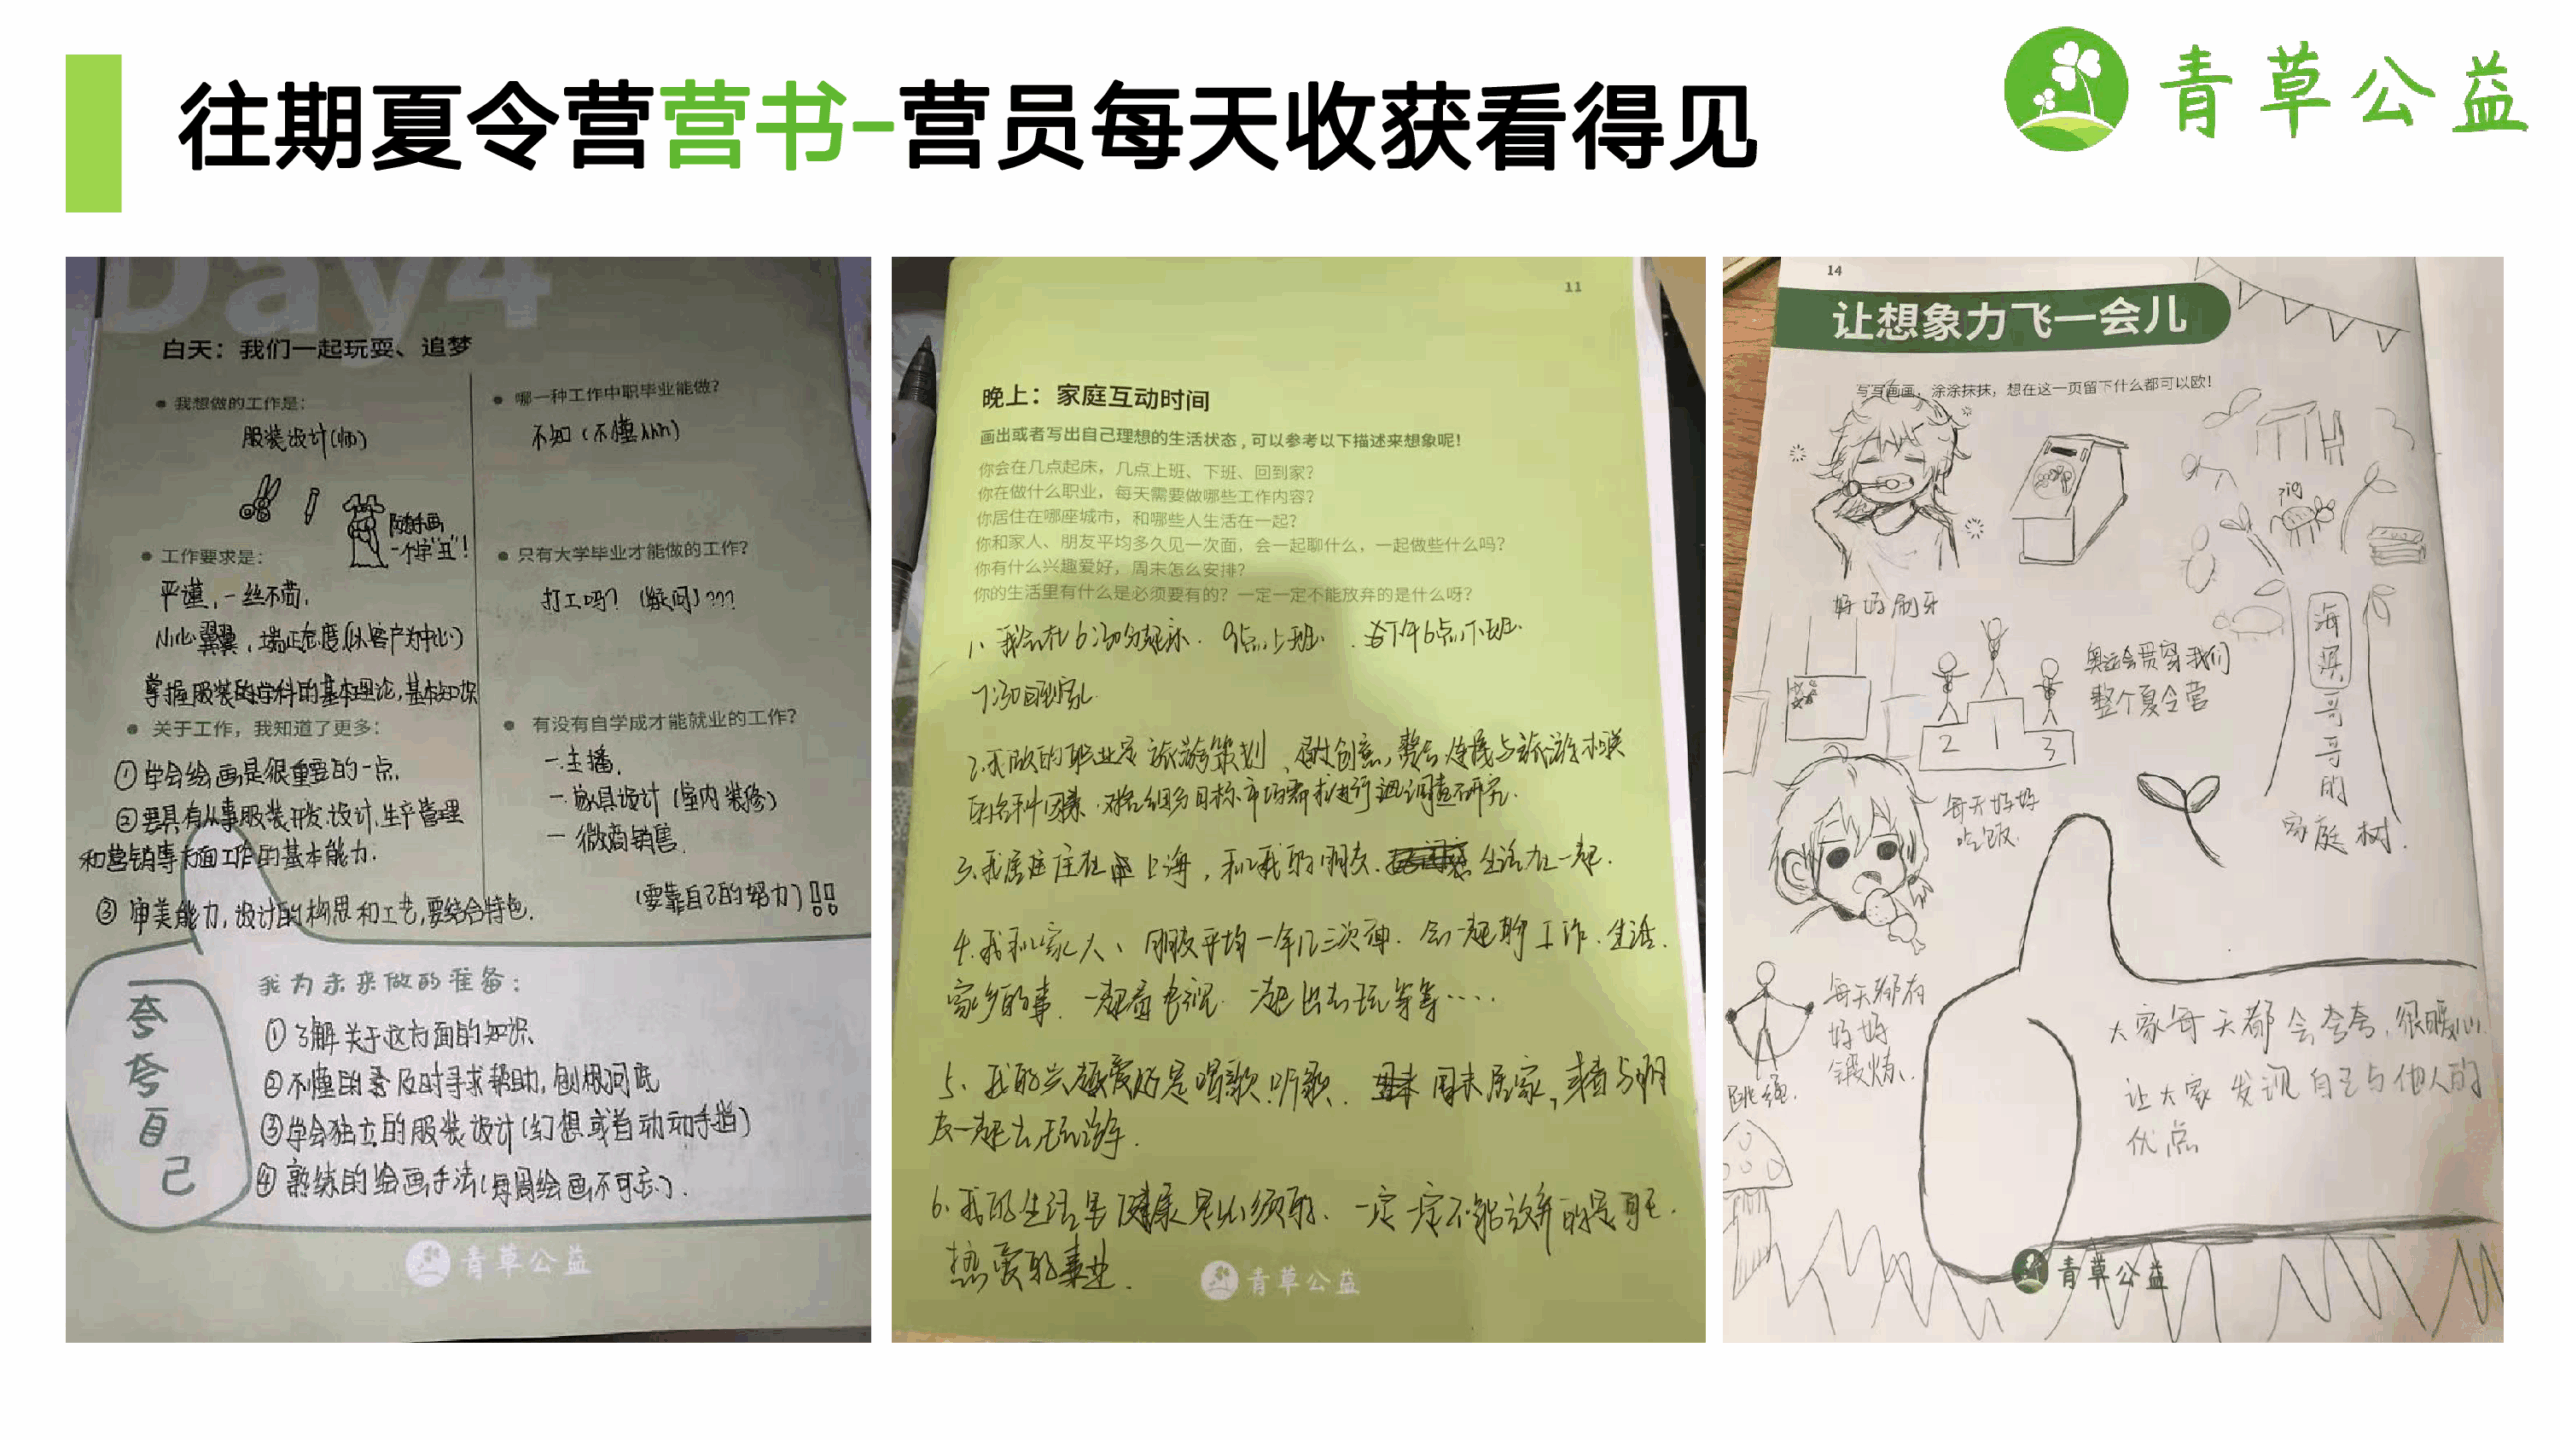 往期夏令营营书-营员每天收获看得见
青草公益
Day4
白天：我们一起玩耍、追梦
● 我想做的工作是：
服装设计(师)
随手画
一个字"丑"！
● 工作要求是：
严谨，一丝不苟，
小心翼翼，端正态度(以客户为中心)
掌握服装的学科的基本理论,基本知识
● 关于工作，我知道了更多：
①学会绘画是很重要的一点.
②要具有从事服装开发.设计.生产管理
和营销等方面工作的基本能力.
③ 审美能力,设计的构思和工艺,要结合特色.
● 哪一种工作中职毕业能做？
不知（不懂
● 只有大学毕业才能做的工作？
打工吗？（疑问）???
● 有没有自学成才能就业的工作？
一.主播.
一.家具设计（室内装修）
一 微商销售.
（要靠自己的努力）!!
夸夸自己
我为未来做的准备：
①了解关于这方面的知识.
②不懂的要及时寻求帮助,刨根问底
③学会独立的服装设计(幻想或者动动手指)
④熟练的绘画手法(每周绘画不可忘).
青草公益
11
晚上：家庭互动时间
画出或者写出自己理想的生活状态，可以参考以下描述来想象呢！
你会在几点起床，几点上班、下班、回到家？
你在做什么职业，每天需要做哪些工作内容？
你居住在哪座城市，和哪些人生活在一起？
你和家人、朋友平均多久见一次面，会一起聊什么，一起做些什么吗？
你有什么兴趣爱好，周末怎么安排？
你的生活里有什么是必须要有的？一定一定不能放弃的是什么呀？
1、我会在6:30分起床.9点上班.下午6点下班.
7:30回到家.
2.我做的职业是旅游策划、通过创意,整合连接与旅游相关
的各种因素.对各细分目标市场需求进行调查研究.
3.我居住在上海，和我的朋友.生活在一起.
4.我和家人、朋友平均一年见三次面.会一起聊工作.生活.
家乡的事.一起看电视.一起出去玩等等....
5.我的兴趣爱好是唱歌.听歌.周末居家,或者与朋
友一起去玩游.
6.我的生活里健康是必须的.一定一定不能放弃的是自己.
热爱的事业.
青草公益
14
让想象力飞一会儿
写写画画，涂涂抹抹，想在这一页留下什么都可以欧！
好好刷牙
pig
奥运会贯穿我们
整个夏令营
2 1 3
海滨哥哥的
家庭树.
每天好好
吃饭.
每天都有
好好
锻炼.
跳绳.
大家每天都会夸夸,很暖心.
让大家发现自己与他人的
优点
青草公益